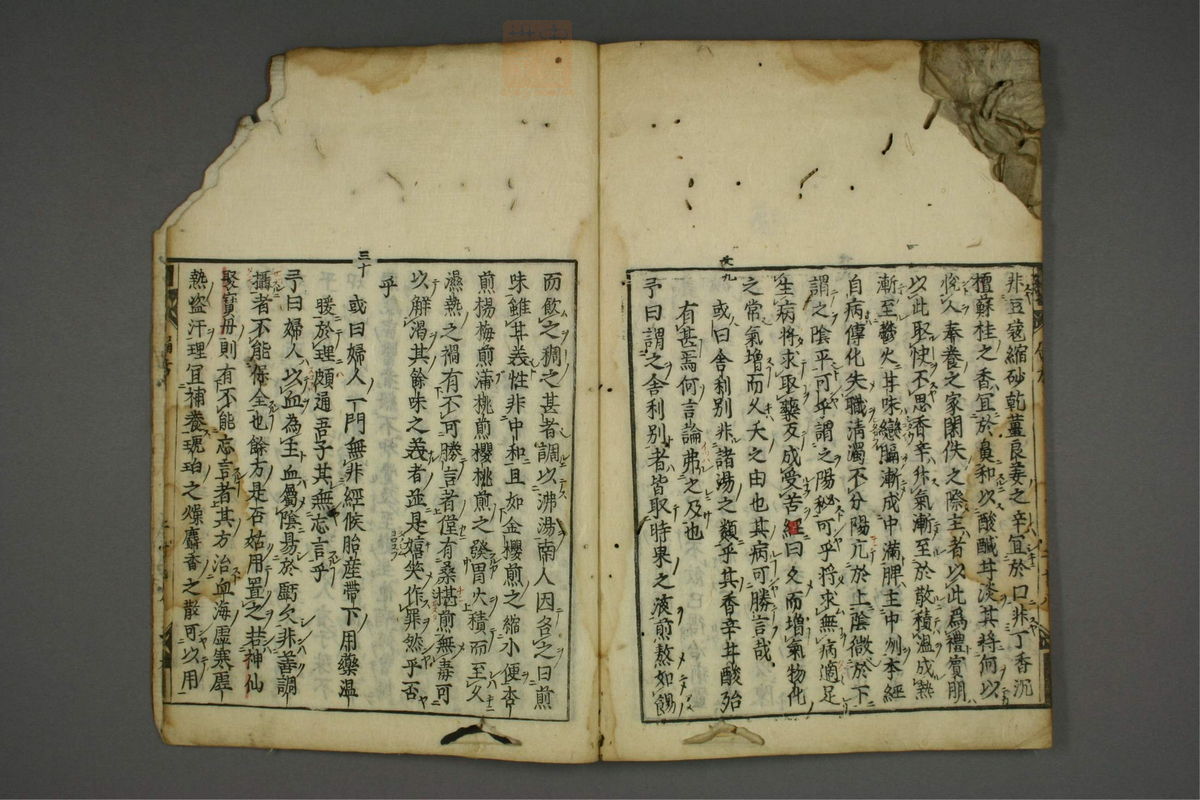 非豆蔲縮砂乾薑良姜之辛宜於口非丁香沉
檀蘇桂之香宜於鼻和以酸醎甘淡其將何以
悅人奉養之家閑佚之際主者以此為禮賔朋
以此取快不思香辛升氣漸至於散積温成熱
漸至鬱火甘味戀膈漸成中滿脾主中州本經
自病傳化失職清濁不分陽亢於上陰微於下
謂之陰平可乎謂之陽秘可乎將求無病適足
生病將求取藥反成受苦經曰久而增氣物化
之常氣增而久夭之由也其病可勝言哉
或曰舍利别非諸湯之類乎其香辛甘酸殆
有甚焉何言論弗之及也
予曰謂之舍利别者皆取時果之液煎熬如餳
而飲之稠之甚者調以沸湯南人因名之曰煎
味雖甘義性非中和且如金櫻煎之縮小便杏
煎楊梅煎蒲桃煎櫻桃煎之發胃火積而至久
濕熱之禍有不可勝言者僅有桑椹煎無毒可
以解渴其餘味之義者並是嬉笑作罪然乎否
乎
三十
或曰婦人一門無非經候胎産帶下用藥温
暖於理頗通吾子其無忘言乎
予曰婦人以血為主血屬陰易於虧欠非善調
攝者不能保全也餘方是否姑用置之若神仙
聚寶丹則有不能忘言者其方治血海虛寒虛
熱盗汗理宜補養琥珀之燥麝香之散可以用